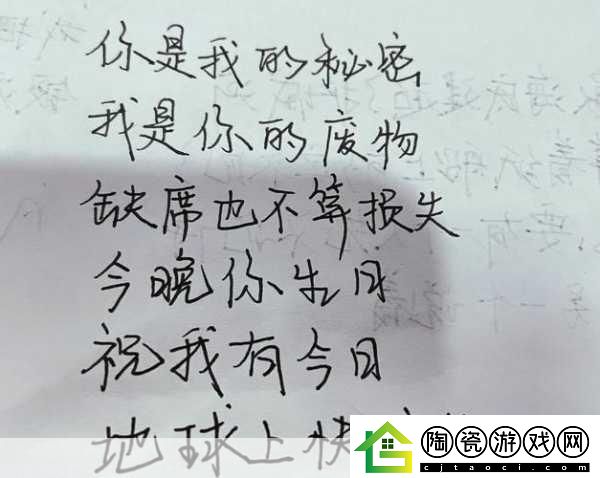 你是我的秘密
我是你的废物
缺席也不算损失
今晚你生日
祝我有今日
地球上快
陶瓷游戏网
cjtaoci.com